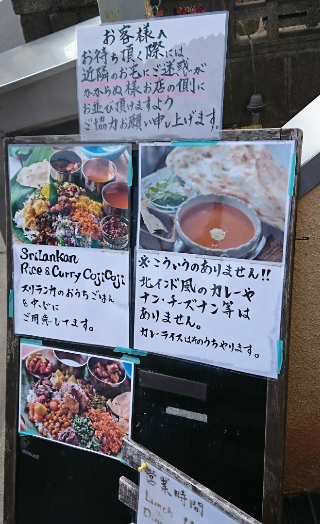 お客様へ
お待ち頂く際には
近隣のお宅にご迷惑が
かからぬ様お店の側に
お並び頂けますよう
ご協力お願い申し上げます。
SriLankan
Rice & Curry CojiCoji
スリランカのおうちごはん
を中心に
ご用意してます。
※こういうのありません!!
北インド風のカレーや
ナン・チーズナン等は
ありません。
カレーライスはそのうちやります。
営業時間
Lunch